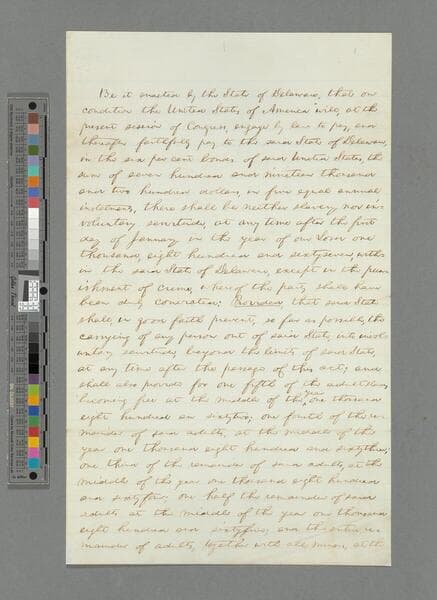 Be it enacted by the State of Delaware, that on
condition the United States of America will, at the
present session of Congress, engage by law to pay, and
thereafter faithfully pay to the said State of Delaware,
in the six per cent bonds of said United States, the
sum of seven hundred and nineteen thousand
and two hundred dollars, in five equal annual
instalments, there shall be neither slavery nor in-
voluntary servitude, at any time after the first
day of January in the year of our Lord one
thousand, eight hundred and sixtyseven, with-
in the said State of Delaware, except in the pun-
ishment of crime, whereof the party shall have
been duly convicted: Provided, that said State
shall, in good faith prevent, so far as possible, the
carrying of any person out of said State, into invol-
untary servitude, beyond the limits of said State,
at any time after the passage of this act; and
shall also provide for one fifth of the adult slaves
becoming free at the middle of the year one thousand
eight hundred and sixtytwo; one fourth of the re-
mainder of said adults, at the middle of the
year one thousand eight hundred and sixtythree;
one third of the remainder of said adults, at the
middle of the year one thousand eight hundred
and sixtyfour; one half the remainder of said
adults at the middle of the year one thousand
eight hundred and sixtyfive; and the entire re-
mainder of adults, together with all minors, at the